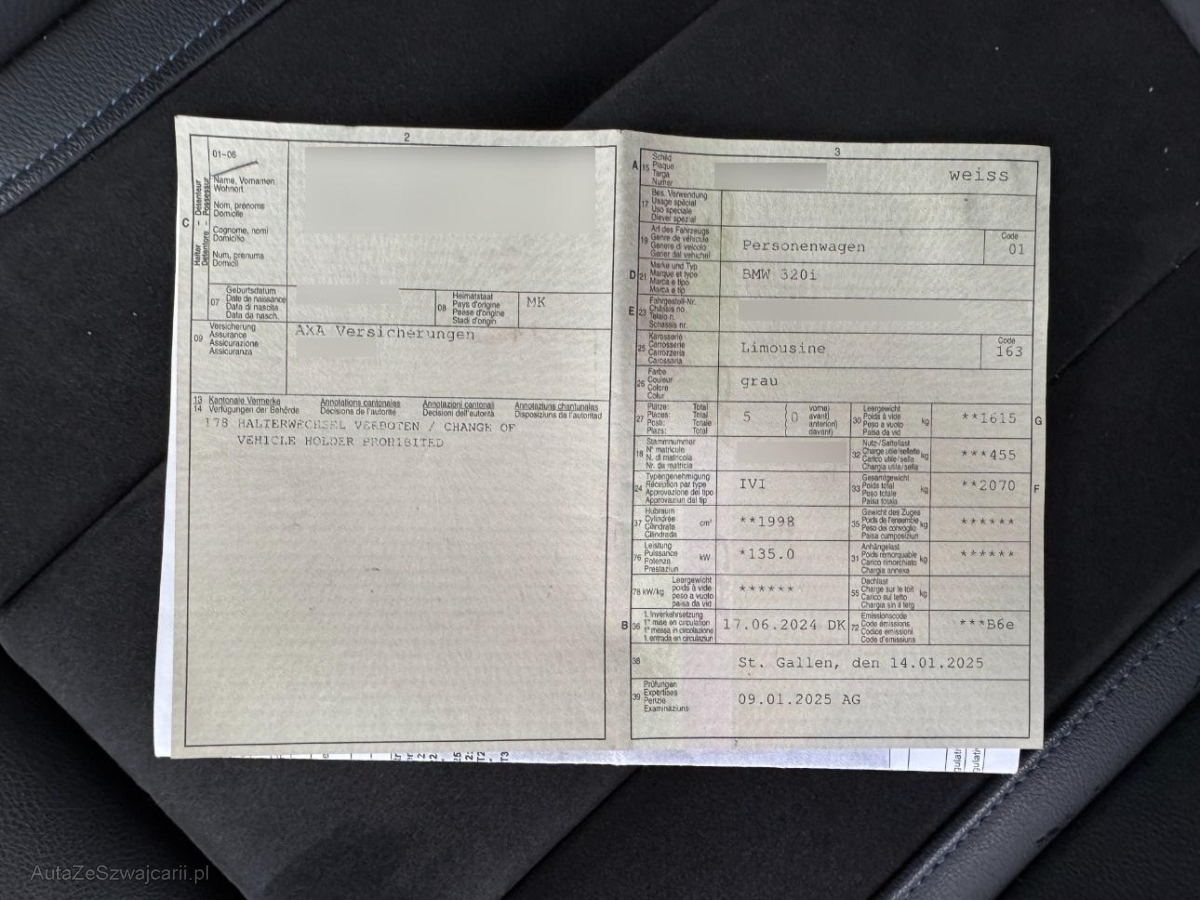 2
01-06
Halter - Détenteur
Detentore - Possessur
C
Name, Vornamen
Wohnort
Nom, prénoms
Domicile
Cognome, nomi
Domicilio
Num, prenums
Domicil
07
Geburtsdatum
Date de naissance
Data di nascita
Data da nasch.
08
Heimatstaat
Pays d'origine
Paese d'origine
Stadi d'origin
MK
09
Versicherung
Assurance
Assicurazione
Assicuranza
AXA Versicherungen
13 Kantonale Vermerke Annotations cantonales Annotazioni cantonali Annotaziuns chantunalas
14 Verfügungen der Behörde Décisions de l'autorité Decisioni dell'autorità Disposiziuns da l'autoritad
178 HALTERWECHSEL VERBOTEN / CHANGE OF
VEHICLE HOLDER PROHIBITED
3
A 15
Schild
Plaque
Targa
Numer
weiss
17
Bes. Verwendung
Usage spécial
Uso speciale
Diever spezial
19
Art des Fahrzeugs
Genre de véhicule
Genere di veicolo
Gener dal vehichel
Personenwagen
Code
01
D 21
Marke und Typ
Marque et type
Marca e tipo
Marca e tip
BMW 320i
E 23
Fahrgestell-Nr.
Châssis no.
Telaio n.
Schassis nr.
25
Karosserie
Carrosserie
Carrozzeria
Carossaria
Limousine
Code
163
26
Farbe
Couleur
Colore
Colur
grau
27
Plätze: Total
Places: Total
Posti: Totale
Plazs: Total
5 (0
vorne)
avant)
anteriori)
davant)
30
Leergewicht
Poids à vide
Peso a vuoto
Paisa da vid
kg
**1615
G
18
Stammnummer
N° matricule
N. di matricola
Nr. da matricla
32
Nutz-/Sattellast
Charge utile/sellette
Carico utile/sella
Chargia utila/sella
kg
***455
24
Typengenehmigung
Réception par type
Approvazione del tipo
Approvaziun dal tip
IVI
33
Gesamtgewicht
Poids total
Peso totale
Paisa totala
kg
**2070
F
37
Hubraum
Cylindrée
Cilindrata
Cilindrada
cm³
**1998
35
Gewicht des Zuges
Poids de l'ensemble
Peso del convoglio
Paisa cumposiziun
kg
******
76
Leistung
Puissance
Potenza
Prestaziun
kW
*135.0
31
Anhängelast
Poids remorquable
Carico rimorchiato
Chargia annexa
kg
******
78 kW/kg
Leergewicht
poids à vide
peso a vuoto
paisa da vid
******
55
Dachlast
Charge sur le toit
Carico sul tetto
Chargia sin il tetg
kg
B 36
1. Inverkehrsetzung
1re mise en circulation
1a messa in circolazione
1. entrada en circulaziun
17.06.2024 DK
72
Emissionscode
Code émissions
Codice emissioni
Code d'emissiuns
***B6e
38
St. Gallen, den 14.01.2025
39
Prüfungen
Expertises
Perizie
Examinaziuns
09.01.2025 AG
AutaZeSzwajcarii.pl